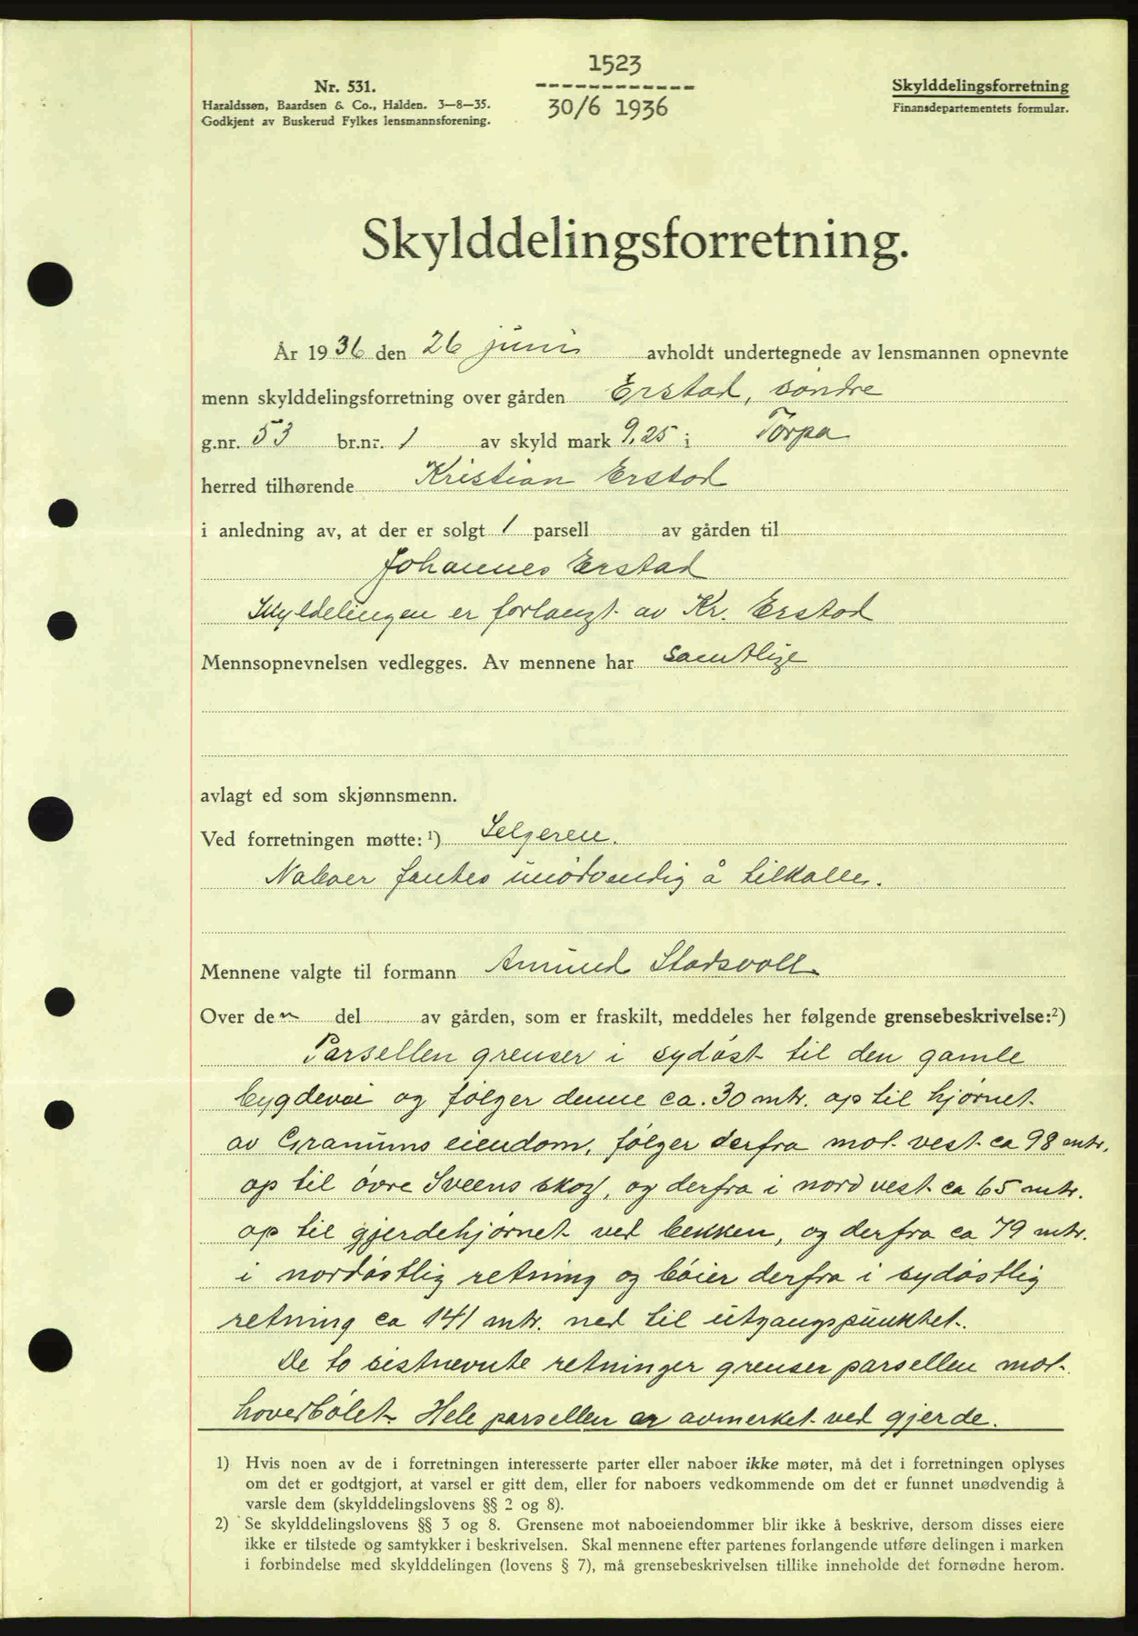 1523
Nr. 531.
Haraldssøn, Baardsen & Co., Halden. 3—8—35.
Godkjent av Buskerud Fylkes lensmannsforening.
30/6 1936
Skylddelingsforretning
Finansdepartementets formular.
Skylddelingsforretning.
År 1936 den 26 juni avholdt undertegnede av lensmannen opnevnte
menn skylddelingsforretning over gården Erstad, søndre
g.nr. 53 br.nr. 1 av skyld mark 9,25 i Torpa
herred tilhørende Kristian Erstad
i anledning av, at der er solgt 1 parsell av gården til
Johannes Erstad
Skyldelingen er forlangt av Kr. Erstad
Mennsopnevnelsen vedlegges. Av mennene har samtlige
avlagt ed som skjønnsmenn.
Ved forretningen møtte: ¹) Selgeren.
Naboer fantes unødvendig å tilkalle.
Mennene valgte til formann Amund Stadsvoll
Over den del av gården, som er fraskilt, meddeles her følgende grensebeskrivelse:²)
Parsellen grenser i sydøst til den gamle
bygdevei og følger denne ca. 30 mtr. op til hjørnet
av Granums eiendom, følger derfra mot vest ca 98 mtr.
op til øvre Sveens skog, og derfra i nordvest ca 65 mtr.
op til gjerdehjørnet ved bekken, og derfra ca 79 mtr.
i nordøstlig retning og bøier derfra i sydøstlig
retning ca 141 mtr. ned til utgangspunktet.
De to sistnevnte retninger grenser parsellen mot
hovedbølet. Hele parsellen er avmerket ved gjerde.
1) Hvis noen av de i forretningen interesserte parter eller naboer ikke møter, må det i forretningen oplyses
om det er godtgjort, at varsel er gitt dem, eller for naboers vedkommende om det er funnet unødvendig å
varsle dem (skylddelingslovens §§ 2 og 8).
2) Se skylddelingslovens §§ 3 og 8. Grensene mot naboeiendommer blir ikke å beskrive, dersom disses eiere
ikke er tilstede og samtykker i beskrivelsen. Skal mennene efter partenes forlangende utføre delingen i marken
i forbindelse med skylddelingen (lovens § 7), må grensebeskrivelsen tillike inneholde det fornødne herom.